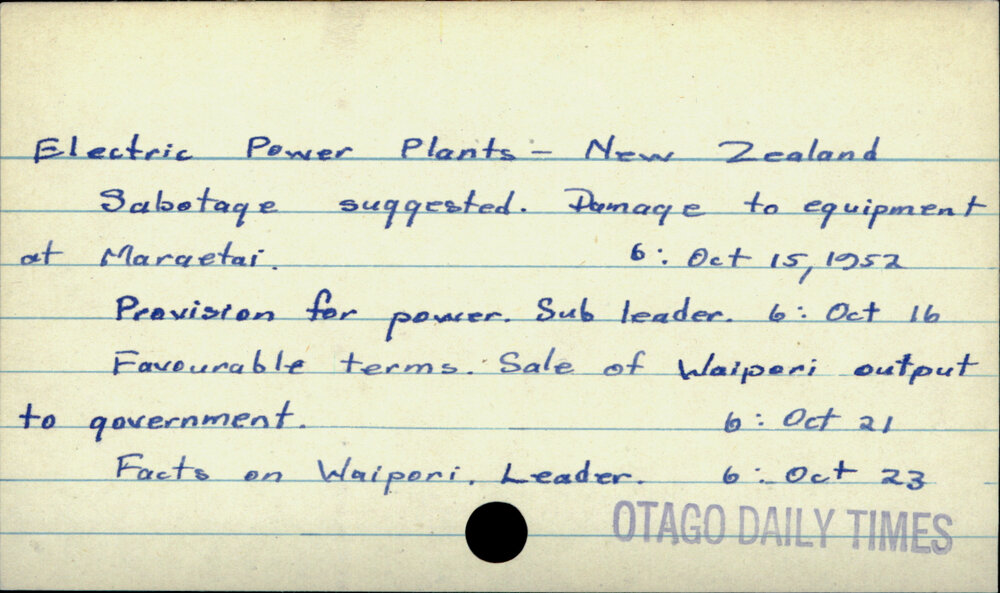 Electric Power Plants - New Zealand
Sabotage suggested. Damage to equipment
at Maraetai. 6: Oct 15, 1952
Provision for power. Sub leader. 6: Oct 16
Favourable terms. Sale of Waipori output
to government. 6: Oct 21
Facts on Waipori. Leader. 6: Oct 23
OTAGO DAILY TIMES